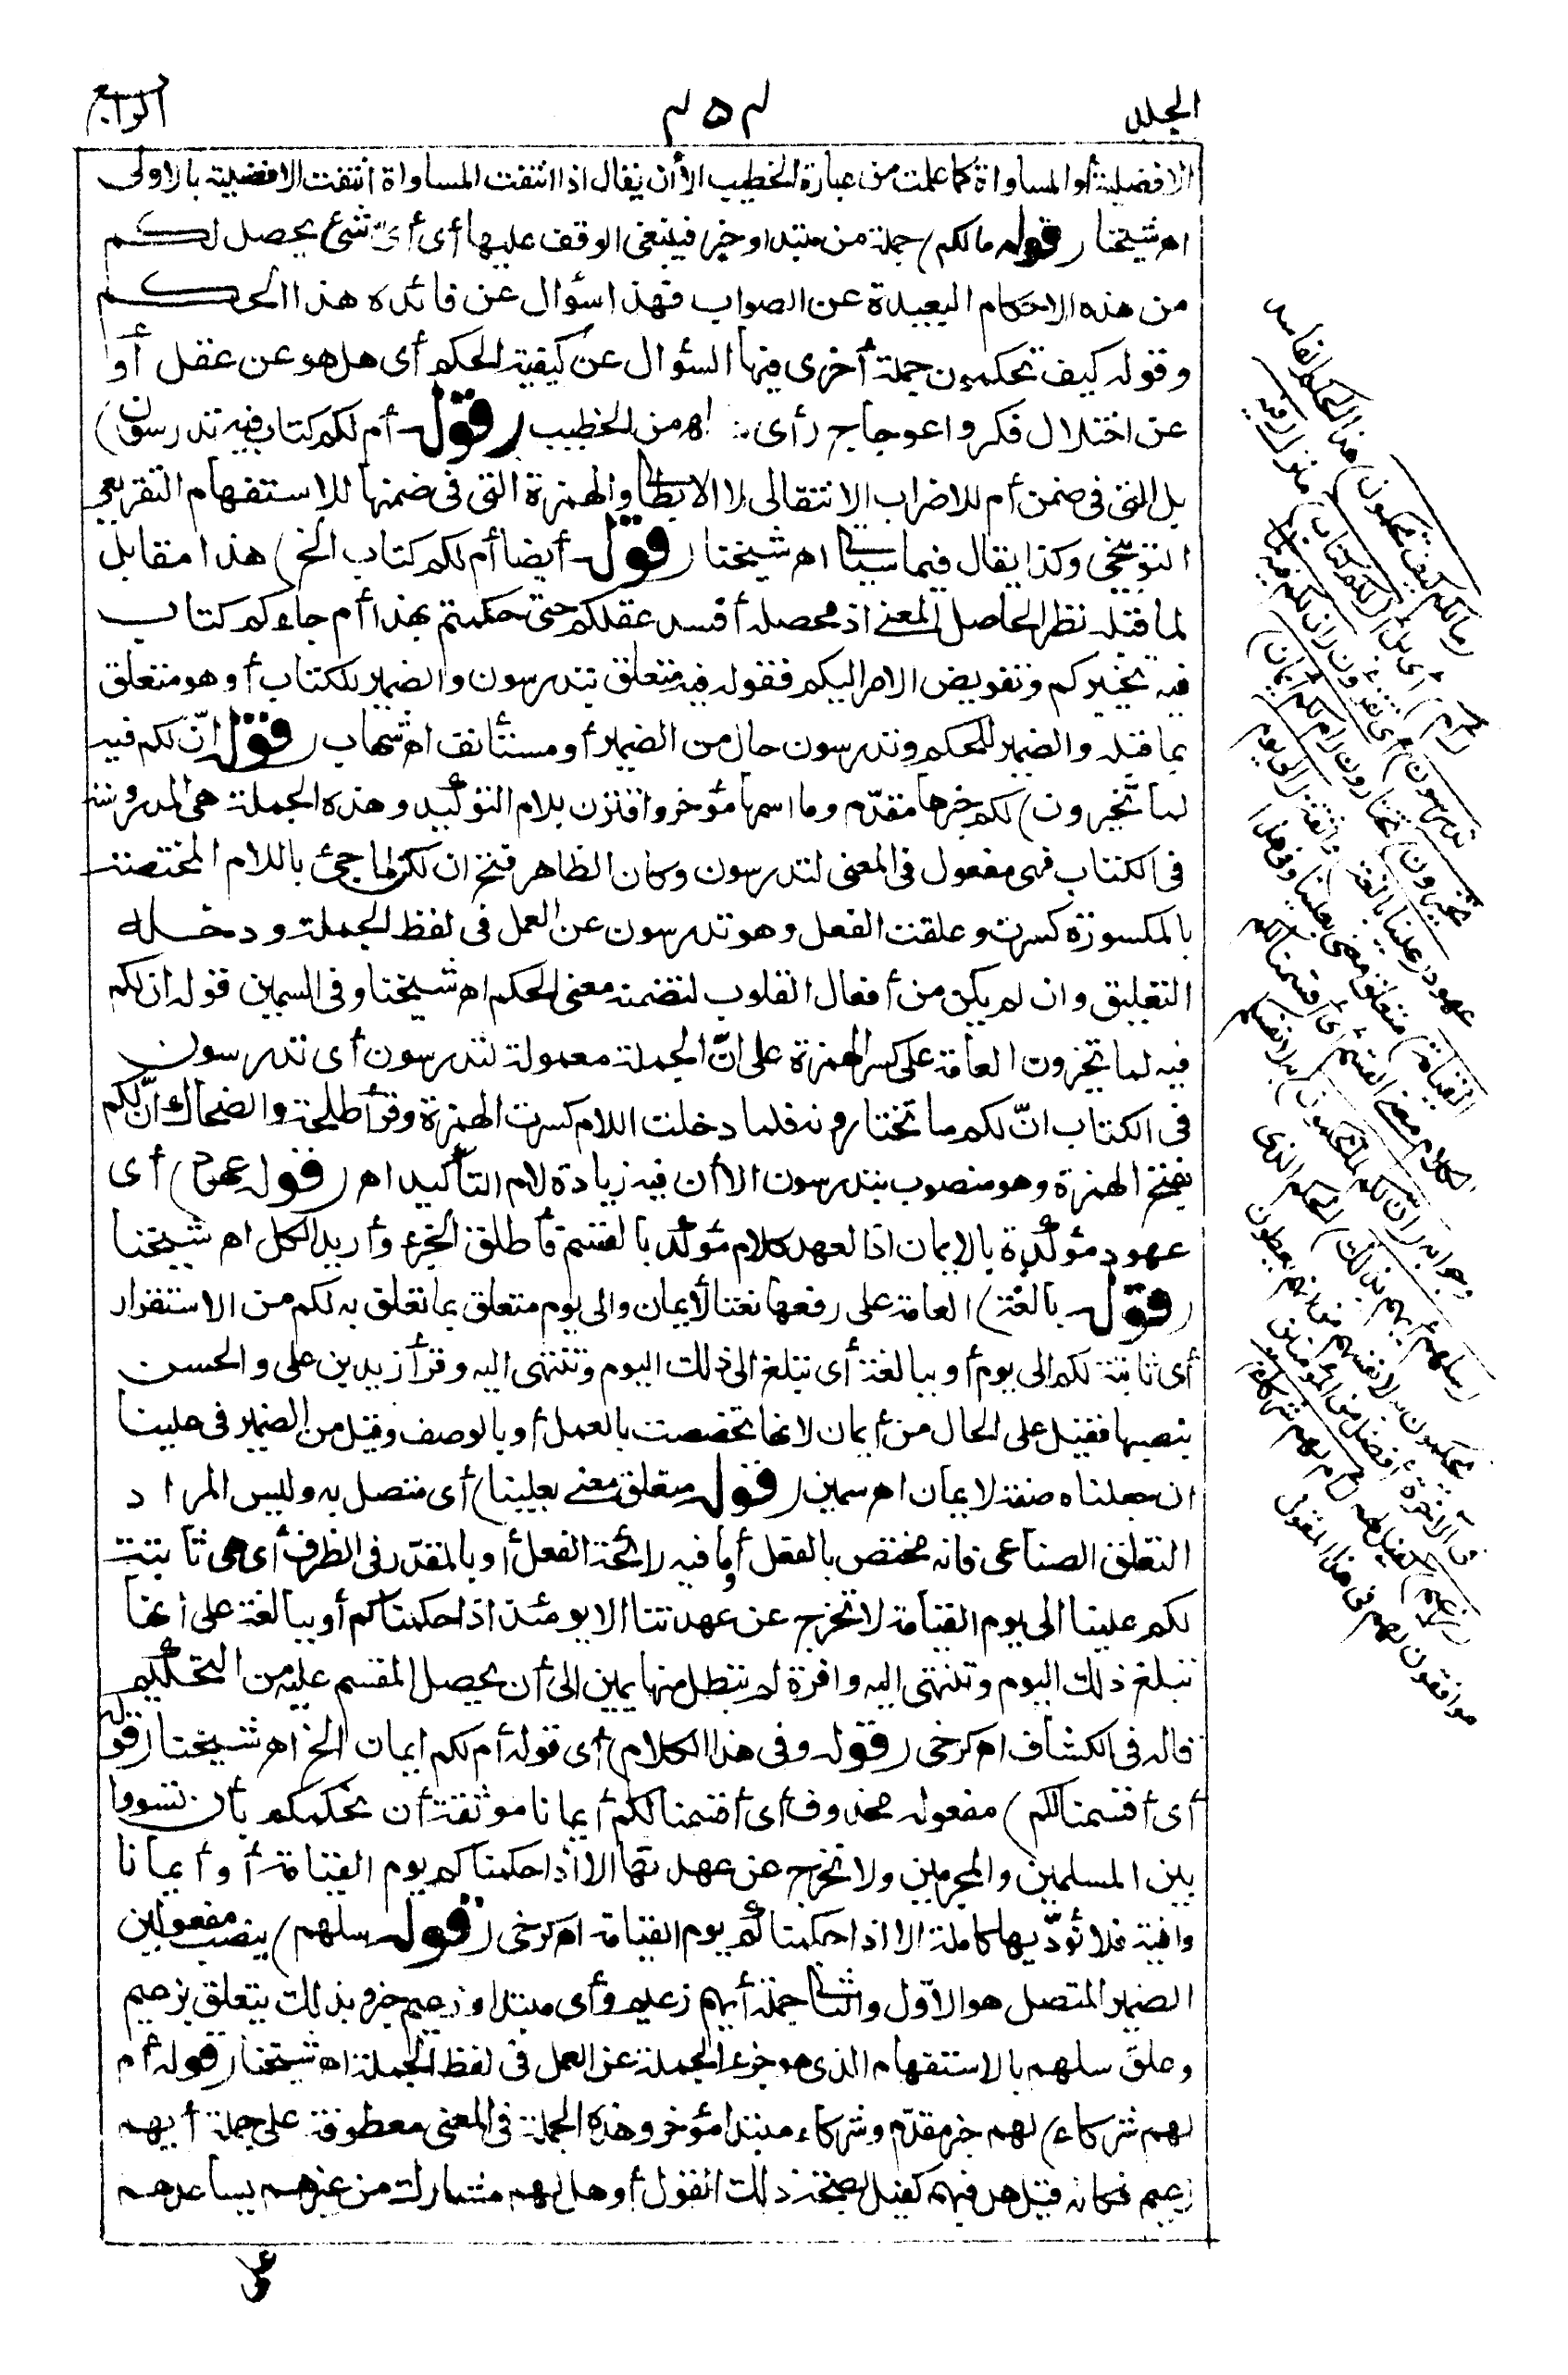 الجلد
٤٥٤
الرابع
الافضلية أو المساواة كما علمت من عبارة الخطيب الا أن يقال اذا انتفت المساواة انتفت الافضلية بالاولى
اه شيخنا (قوله مالكم) جملة من مبتدا وخبر فينبغى الوقف عليها أى أىّ شئ يحصل لكم
من هذه الاحكام البعيدة عن الصواب فهذا سؤال عن فائدة هذا الحكم
وقوله كيف تحكمون جملة أخرى فيها السؤال عن كيفية الحكم أى هل هو عن عقل أو
عن اختلال فكر واعوجاج رأى اه من الخطيب (قوله أم لكم كتاب فيه تدرسون)
بل التى فى ضمن أم للاضراب الانتقالى لا الابطالى والهمزة التى فى ضمنها للاستفهام التقريعى
التوبيخى وكذا يقال فيما سيأتى اه شيخنا (قوله أيضا أم لكم كتاب الخ) هذا مقابل
لما قبله نظر الحاصل المعنى اذ محصله أفسد عقلكم حتى حكمتم بهذا أم جاءكم كتاب
فيه تخييركم وتفويض الامر اليكم فقوله فيه متعلق بتدرسون والضمير للكتاب أو هو متعلق
بما قبله والضمير للحكم وتدرسون حال من الضمير أو مستأنف اه شهاب (قوله انّ لكم فيه
لما تخيرون) لكم خبرها مقدّم وما اسمها مؤخر واقترن بلام التوكيد وهذه الجملة هى المدروسة
فى الكتاب فهى مفعول فى المعنى لتدرسون وكان الظاهر فتح ان لكن لما جئ باللام المختصة
بالمكسورة كسرت وعلقت الفعل وهو تدرسون عن العمل فى لفظ الجملة ودخله
التعليق وان لم يكن من أفعال القلوب لتضمنه معنى الحكم اه شيخنا وفى السمين قوله ان لكم
فيه لما تخيرون العامة على كسر الهمزة على انّ الجملة معمولة لتدرسون أى تدرسون
فى الكتاب انّ لكم ما تختارونه فلما دخلت اللام كسرت الهمزة وقرأ طلحة والضحاك انّ لكم
بفتح الهمزة وهو منصوب بتدرسون الا أن فيه زيادة لام التأكيد اه (قوله عهود) أى
عهود مؤكدة بالايمان اذ العهد كلام مؤكد بالقسم فأطلق الجزء وأريد الكل اه شيخنا
(قوله بالغة) العامة على رفعها نعتا لأيمان والى يوم متعلق بما تعلق به لكم من الاستقرار
أى ثابتة لكم الى يوم أو ببالغة أى تبلغ الى ذلك اليوم وتنتهى اليه وقرأ زيد بن على والحسن
بنصبها فقيل على الحال من أيمان لانها تخصصت بالعمل أو بالوصف وقيل من الضمير فى علينا
ان جعلناه صفة لايمان اه سمين (قوله متعلق معنى بعلينا) أى متصل به وليس المراد
التعلق الصناعى فانه مختص بالفعل أو ما فيه رائحة الفعل أو بالمقدّر فى الظرف أى هى ثابتة
لكم علينا الى يوم القيامة لا نخرج عن عهدتنا الا يومئذ اذا حكمناكم أو ببالغة على انها
تبلغ ذلك اليوم وتنتهى اليه وافرة لم تبطل منها يمين الى أن يحصل المقسم عليه من التحكيم
قاله فى الكشاف اه كرخى (قوله وفى هذا الكلام) أى قوله أم لكم ايمان الخ اه شيخنا (قوله
أى أقسمنا لكم) مفعوله محذوف أى أقسمنا لكم أيمانا موثقة أن نحكمكم بأن تسووا
بين المسلمين والمجرمين ولا نخرج عن عهدتها الا اذا حكمناكم يوم القيامة أو أيمانا
وافية فلا نؤدّيها كاملة الا اذا حكمناكم يوم القيامة اه كرخى (قوله سلهم) ينصب مفعولين
الضمير المتصل هو الاوّل والثانى جملة أيهم زعيم وأى مبتدا وزعيم خبره بذلك يتعلق بزعيم
وعلق سلهم بالاستفهام الذى هو جزء الجملة عن العمل فى لفظ الجملة اه شيخنا (قوله أم
لهم شركاء) لهم خبر مقدّم وشركاء مبتدا مؤخر وهذه الجملة فى المعنى معطوفة على جملة أيهم
زعيم فكانه قيل هل فيهم كفيل بصحة ذلك القول أو هل لهم مشارك من غيرهم يساعدهم
(مالكم كيف تحكمون) هذا الحكم الفاسد
(أم) أى بل (لكم كتاب) منزل (فيه
تدرسون) أى تقرءون (ان لكم فيه لما
تخيرون) تختارون (أم لكم أيمان)
عهود (علينا بالغة) واثقة (الى يوم
القيامة) متعلق معنى بعلينا وفى هذا
الكلام معنى القسم أى أقسمنا لكم
وجوابه (انّ لكم لما تحكمون) به لانفسكم
(سلهم أيهم بذلك) الحكم الذى
يحكمون به لانفسهم من انهم يعطون
فى الآخرة أفضل من المؤمنين
(زعيم) كفيل لهم (أم لهم شركاء)
موافقون لهم فى هذا القول